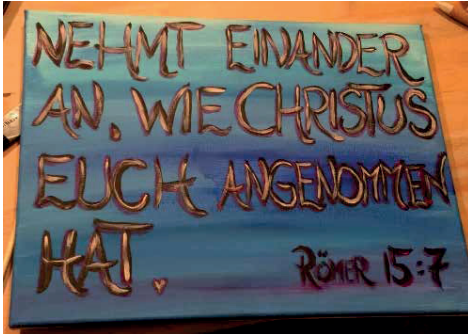 NEHMT EINANDER
AN, WIE CHRISTUS
EUCH ANGENOMMEN
HAT.
RÖMER 15:7